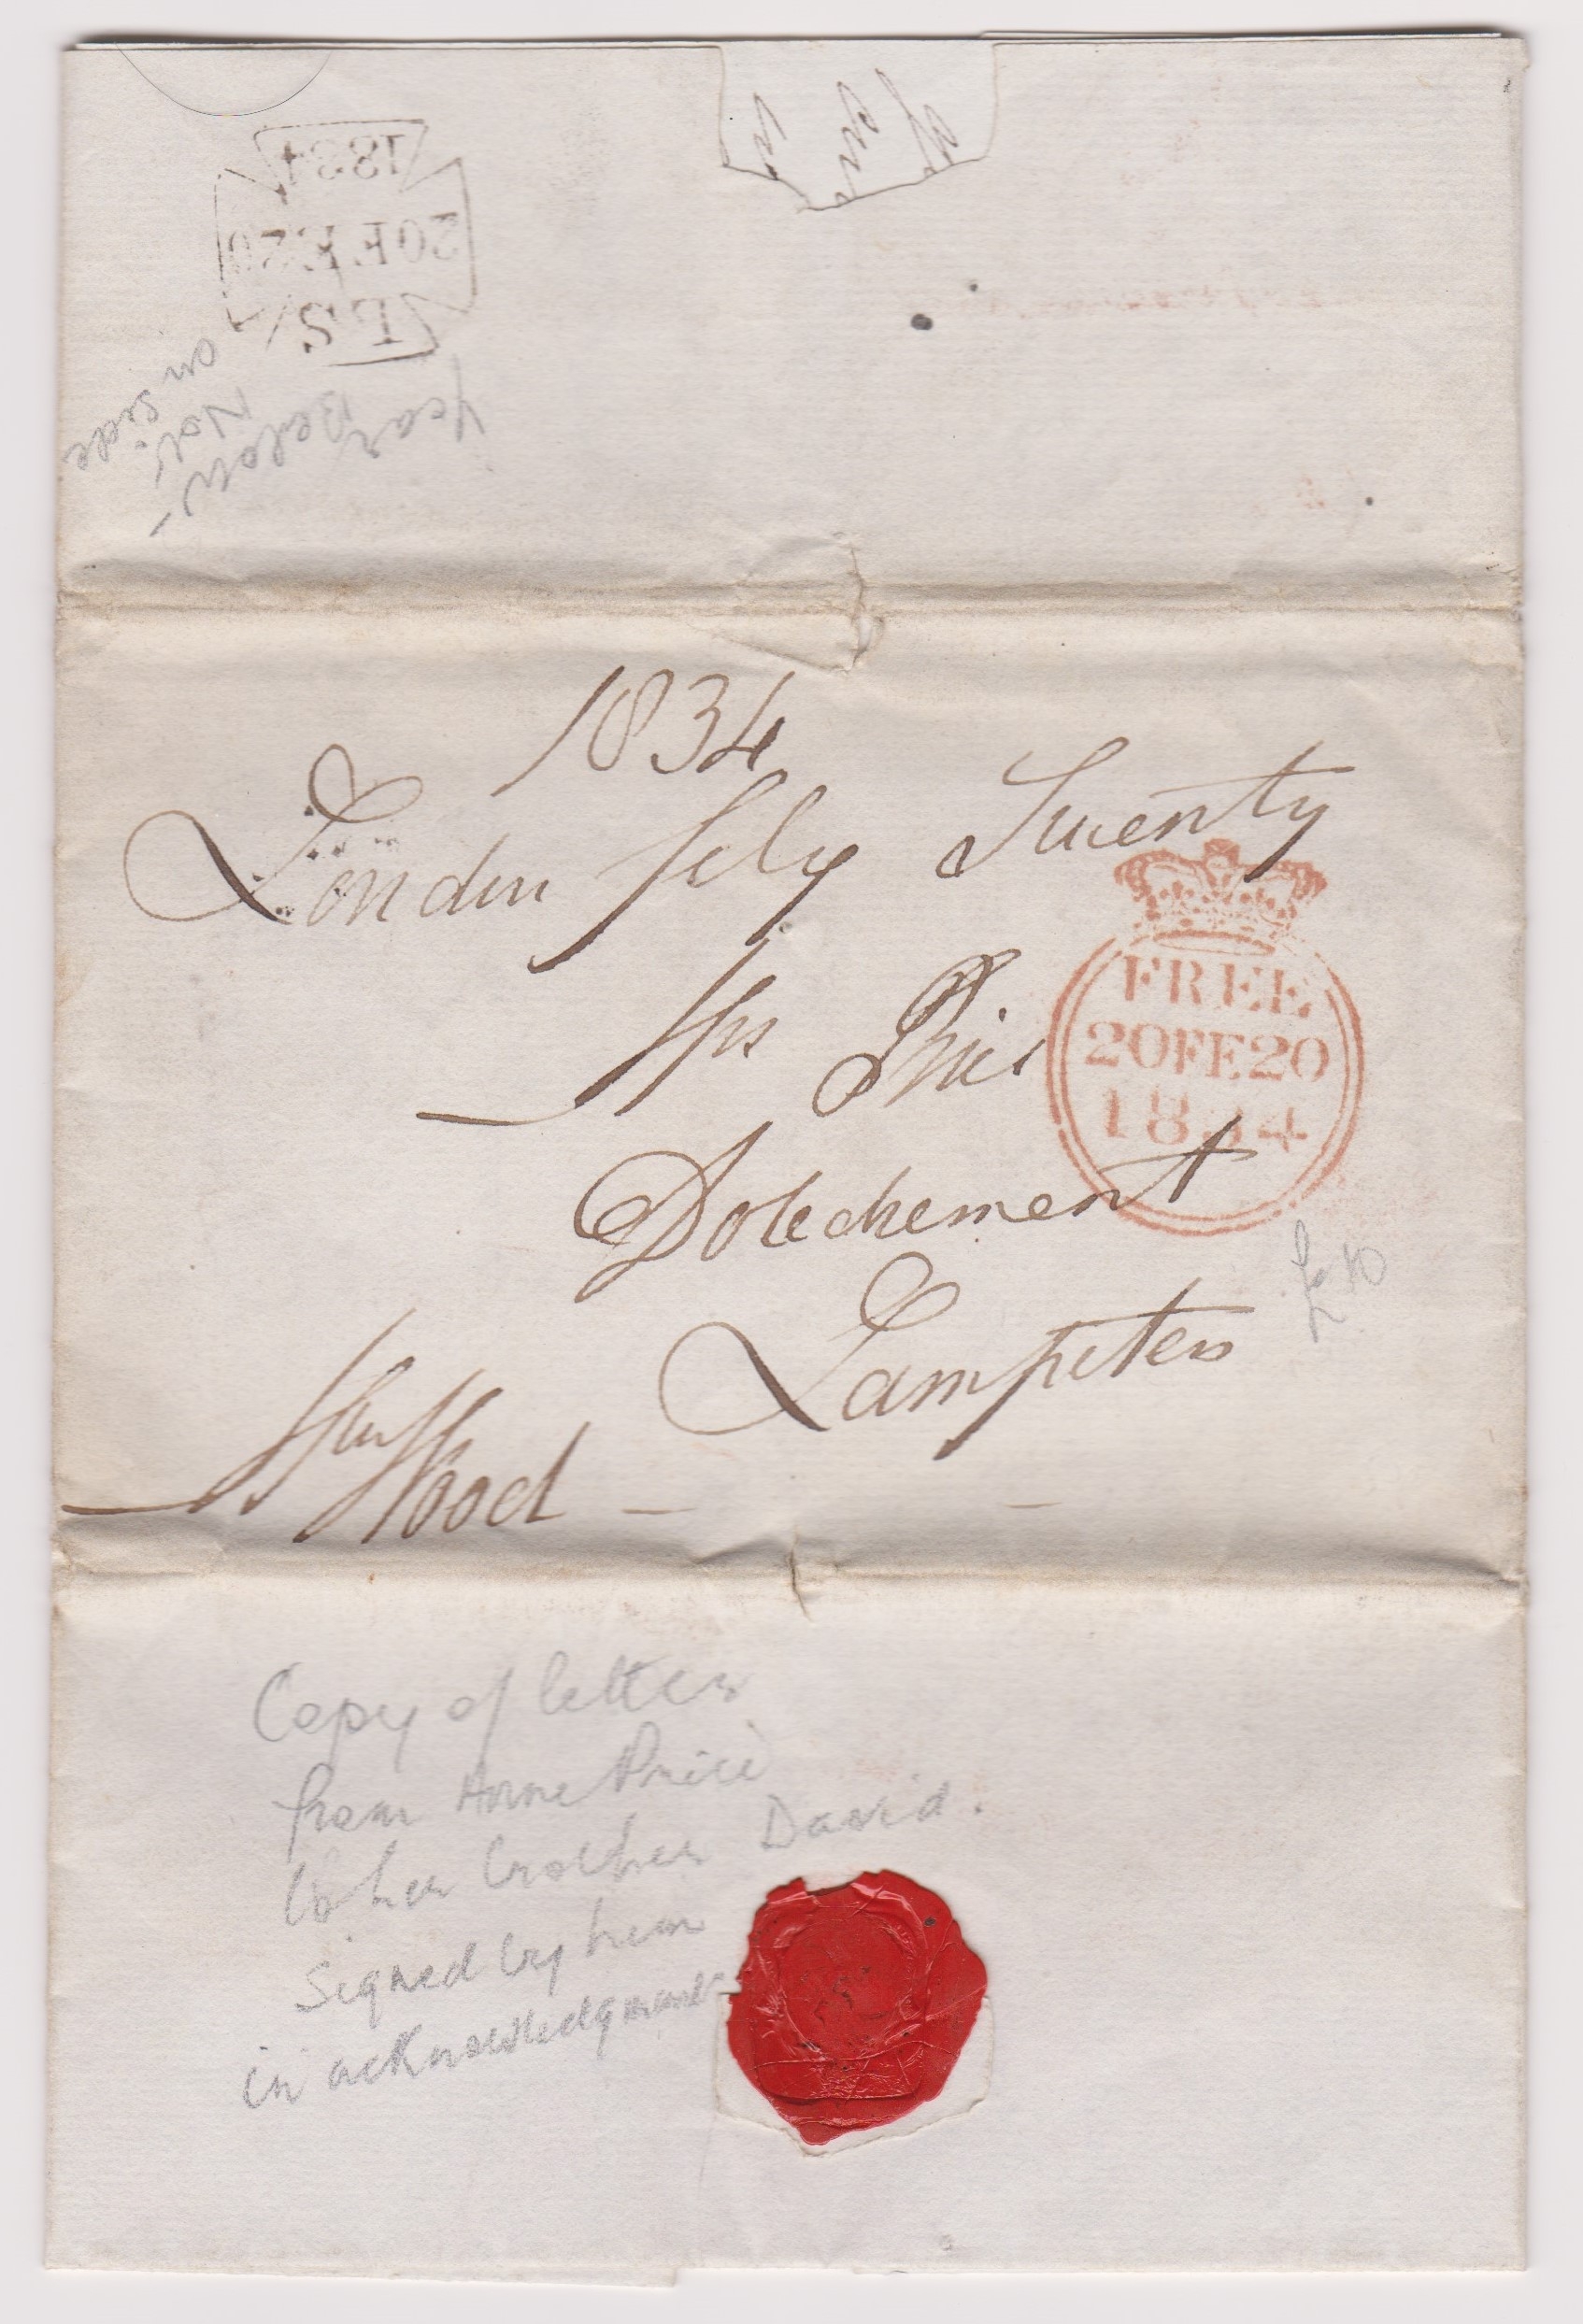 1834
20FE20
LS
Year
Below
Not
on side
1834
London Feby Twenty
Mrs Price
Dolechement
Lampeter
Wood
FREE
20FE20
1834
£10
Copy of letter
from Anne Price
to her brother David.
Signed by him
in acknowledgment